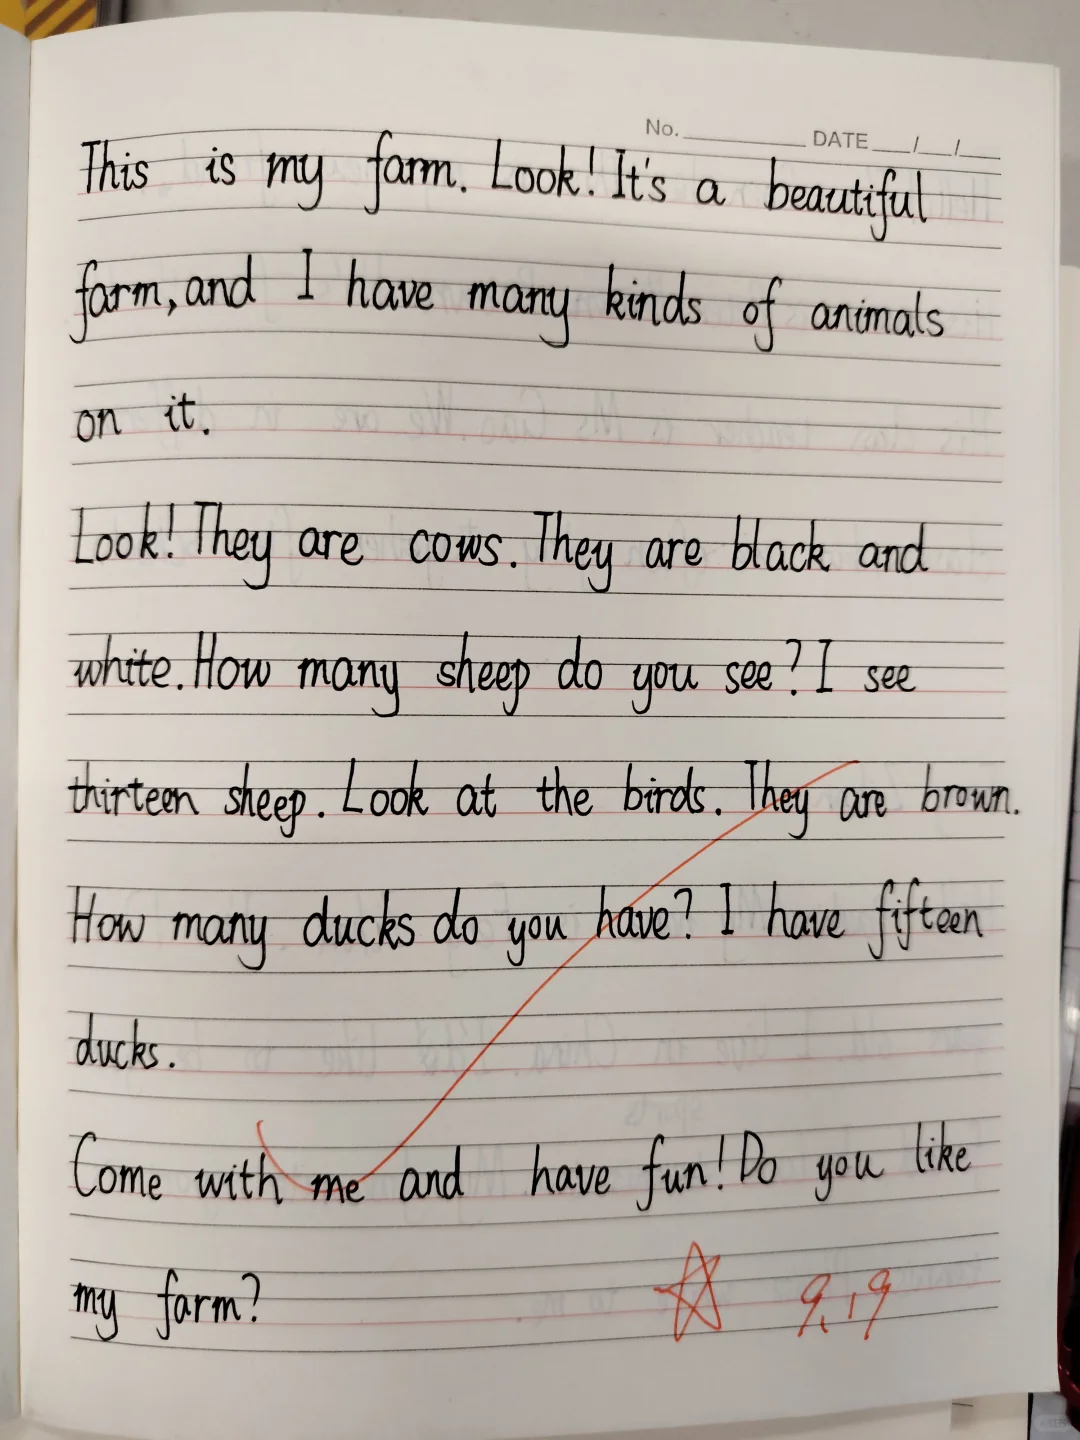 No. DATE / /
This is my farm. Look! It's a beautiful
farm, and I have many kinds of animals
on it.
Look! They are cows. They are black and
white. How many sheep do you see? I see
thirteen sheep. Look at the birds. They are brown.
How many ducks do you have? I have fifteen
ducks.
Come with me and have fun! Do you like
my farm?
9.19